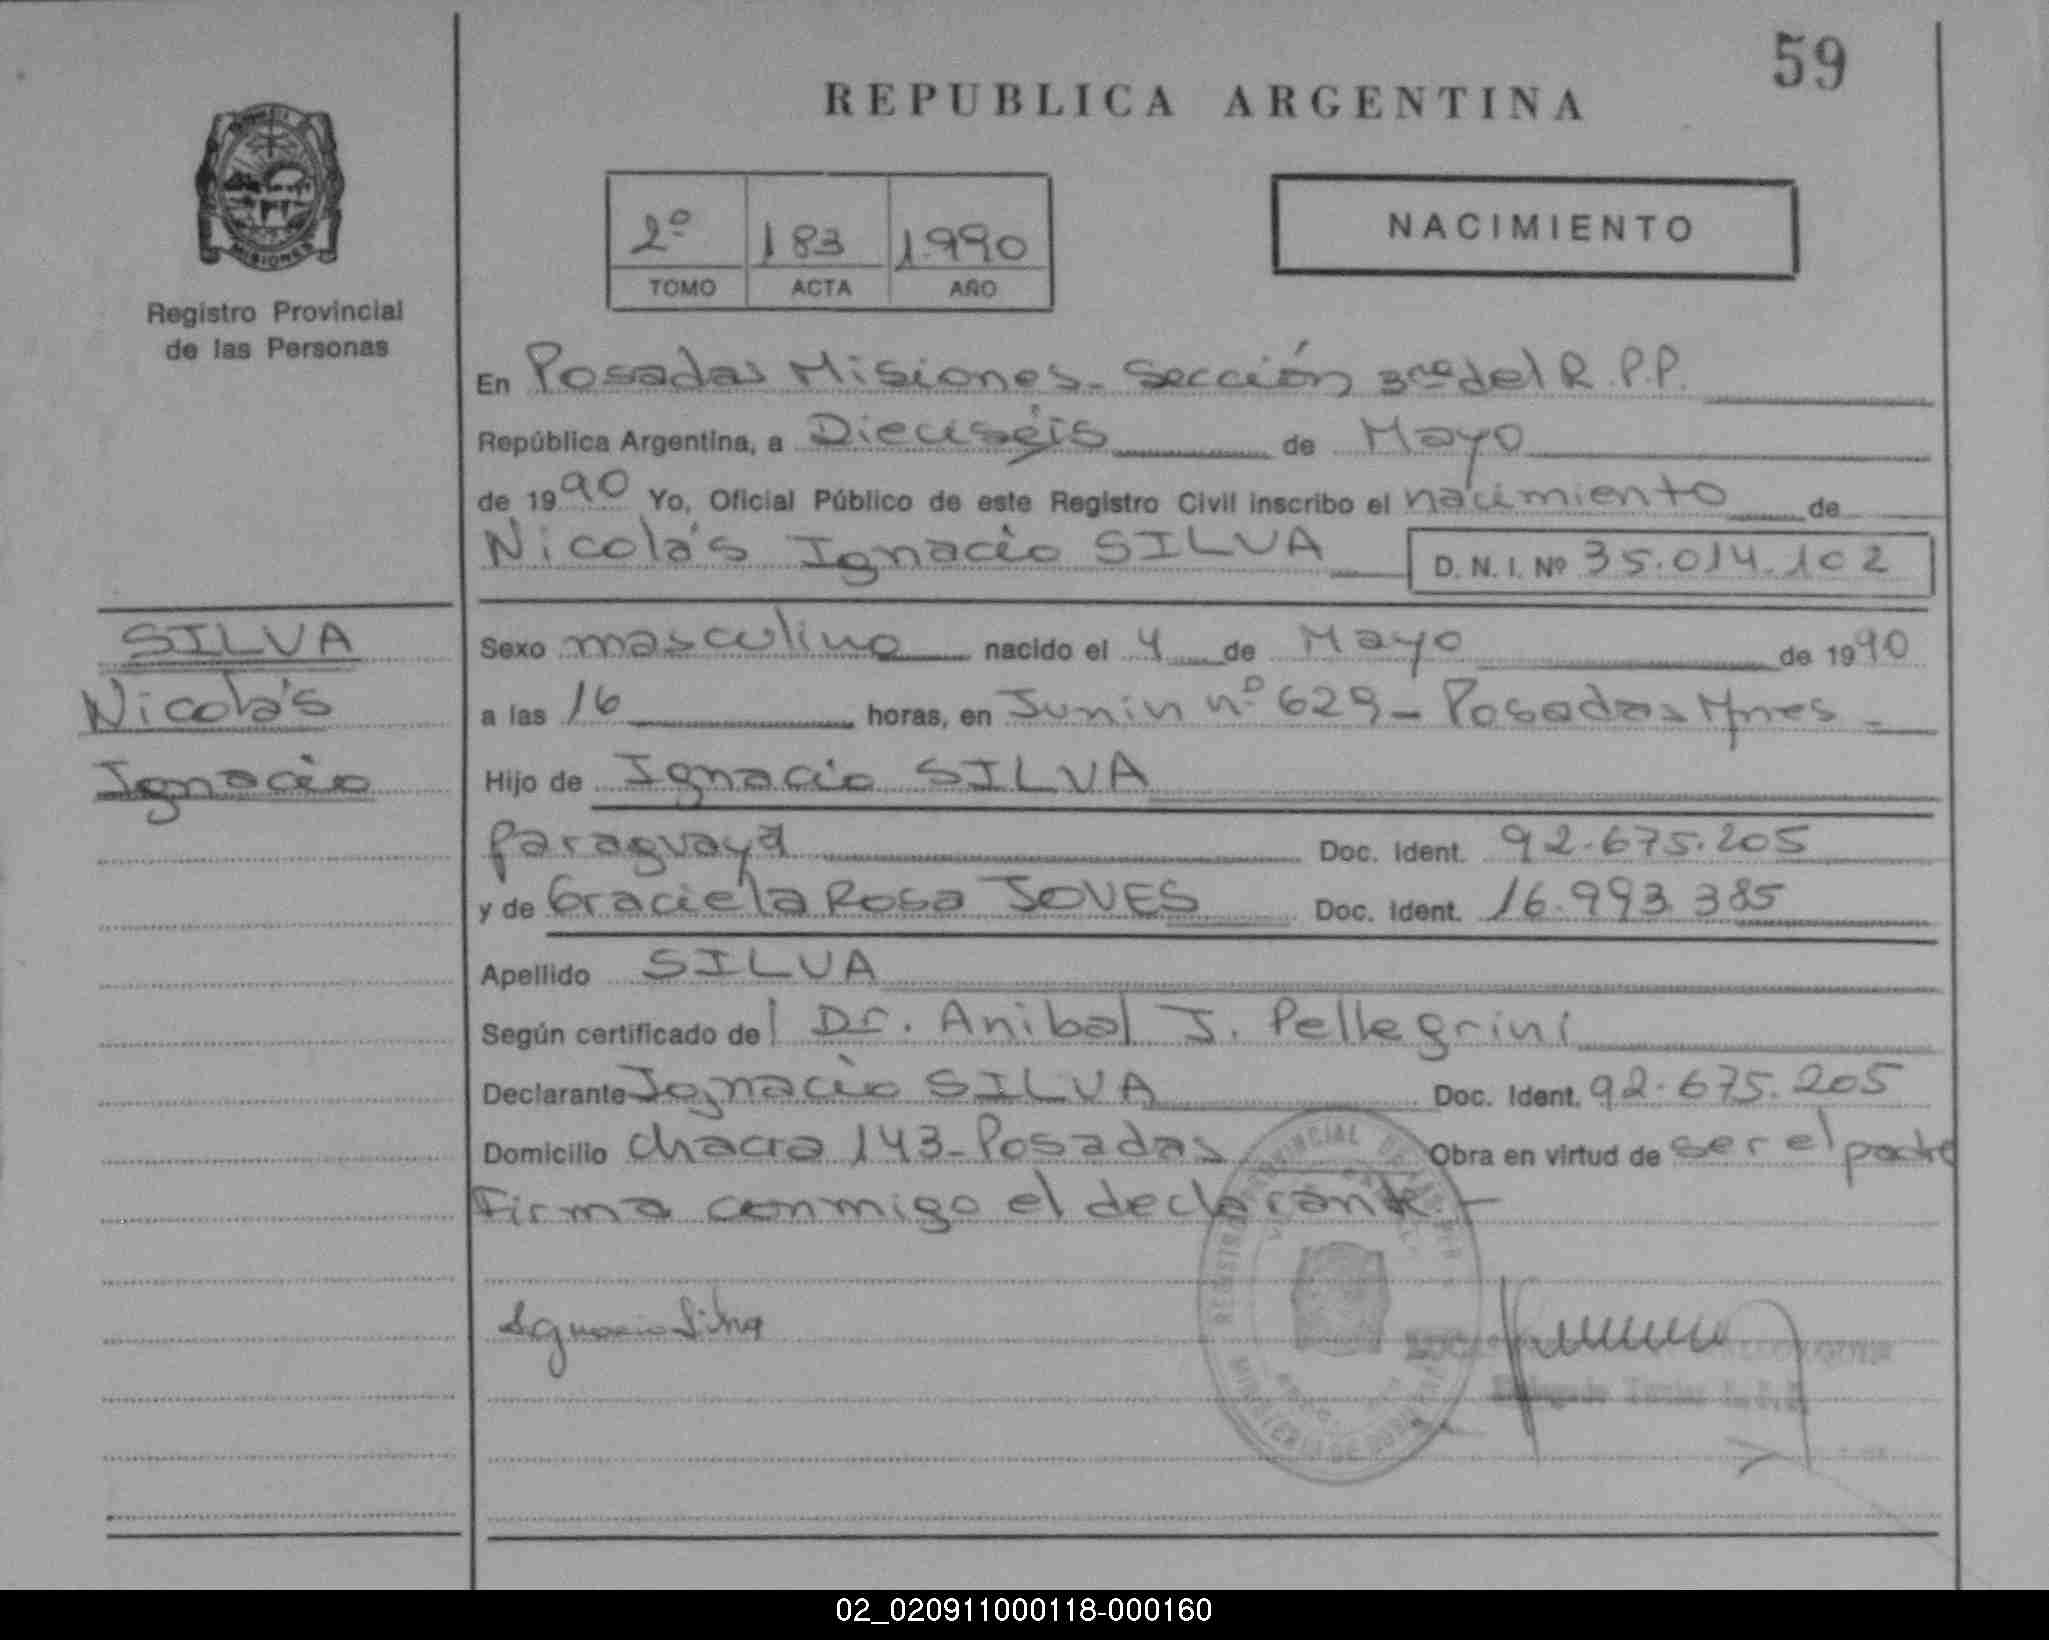 59
REPUBLICA ARGENTINA
MISIONES
Registro Provincial
de las Personas
2º 183 1.990
TOMO ACTA AÑO
NACIMIENTO
En Posadas Misiones - Sección 3ra del R.P.P.
República Argentina, a Dieciséis de Mayo
de 1990 Yo, Oficial Público de este Registro Civil inscribo el nacimiento de
Nicolás Ignacio SILVA D. N. I. Nº 35.014.102
SILVA
Nicolás
Ignacio
Sexo masculino nacido el 4 de Mayo de 1990
a las 16 horas, en Junin nº 629 - Posadas Mnes -
Hijo de Ignacio SILVA
Paraguaya Doc. Ident. 92.675.205
y de Graciela Rosa JOVES Doc. Ident. 16.993.385
Apellido SILVA
Según certificado del Dr. Anibal J. Pellegrini
Declarante Ignacio SILVA Doc. Ident. 92.675.205
Domicilio Chacra 143 - Posadas Obra en virtud de ser el padre
Firma conmigo el declarante -
Ignacio Silva
02_020911000118-000160